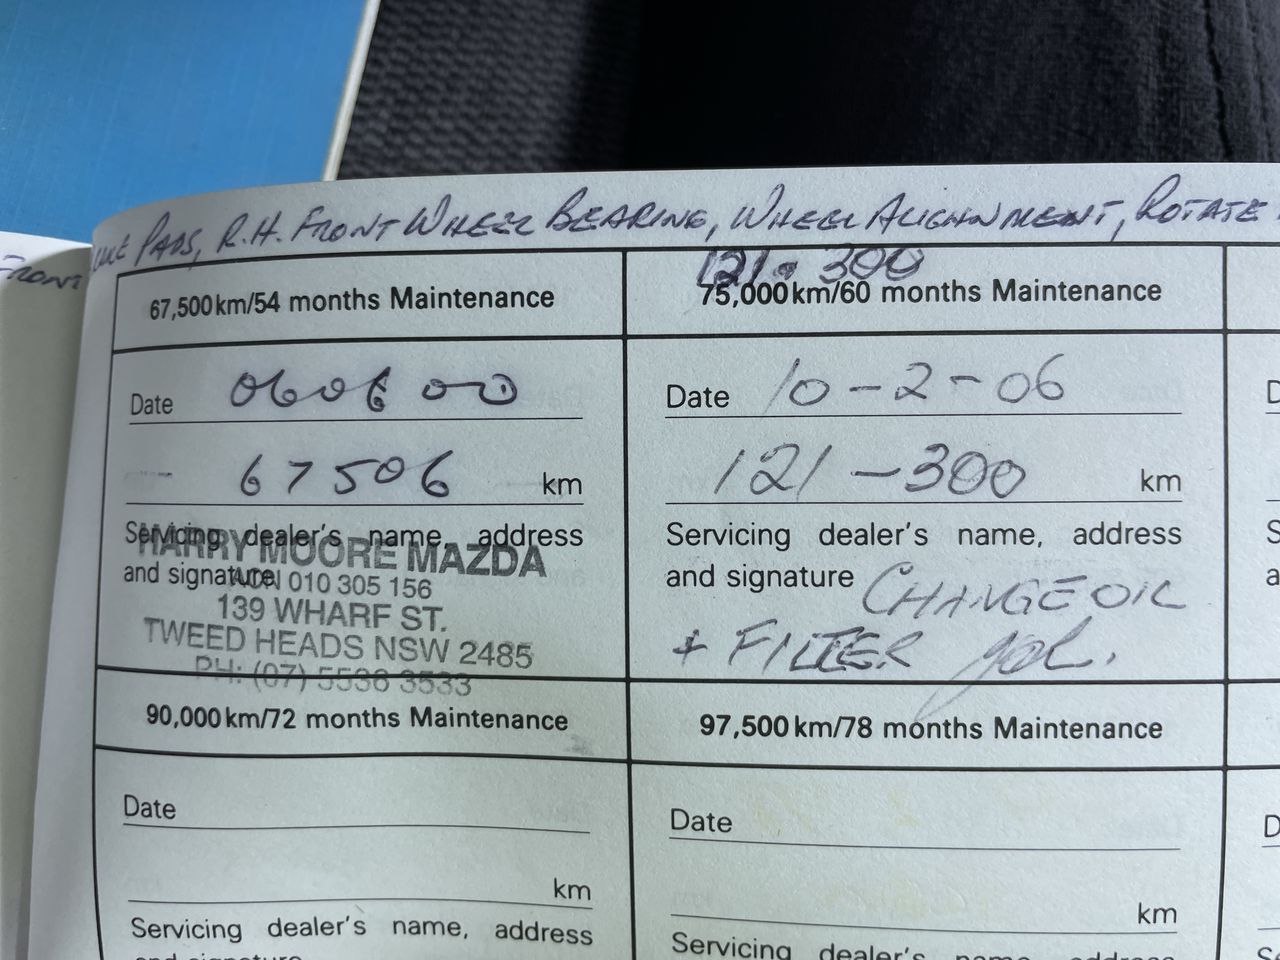 FRONT
PADS, R.H. FRONT WHEEL BEARING, WHEEL ALIGHNMENT, ROTATE
121 - 300
67,500km/54 months Maintenance
75,000km/60 months Maintenance
Date 060600
Date 10-2-06
67506 km
121-300 km
Servicing dealer's name, address
and signature
HARRY MOORE MAZDA
ACN 010 305 156
139 WHARF ST.
TWEED HEADS NSW 2485
PH: (07) 5536 3533
Servicing dealer's name, address
and signature CHANGE OIL
+ FILTER
90,000km/72 months Maintenance
97,500km/78 months Maintenance
Date
Date
km
km
Servicing dealer's name, address
and signature
Servicing dealer's name, address